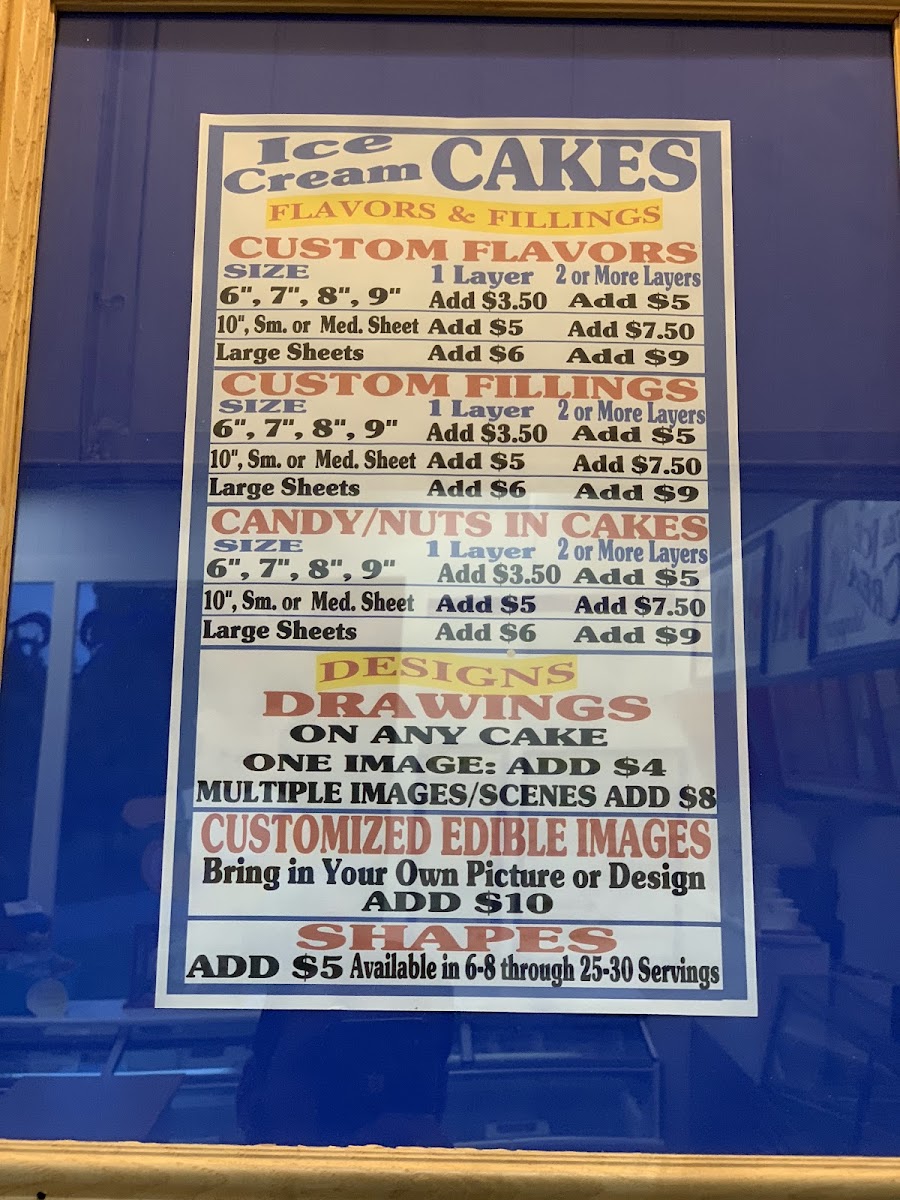 Ice Cream CAKES
FLAVORS & FILLINGS
CUSTOM FLAVORS
SIZE 1 Layer 2 or More Layers
6", 7", 8", 9" Add $3.50 Add $5
10", Sm. or Med. Sheet Add $5 Add $7.50
Large Sheets Add $6 Add $9
CUSTOM FILLINGS
SIZE 1 Layer 2 or More Layers
6", 7", 8", 9" Add $3.50 Add $5
10", Sm. or Med. Sheet Add $5 Add $7.50
Large Sheets Add $6 Add $9
CANDY/NUTS IN CAKES
SIZE 1 Layer 2 or More Layers
6", 7", 8", 9" Add $3.50 Add $5
10", Sm. or Med. Sheet Add $5 Add $7.50
Large Sheets Add $6 Add $9
DESIGNS
DRAWINGS
ON ANY CAKE
ONE IMAGE: ADD $4
MULTIPLE IMAGES/SCENES ADD $8
CUSTOMIZED EDIBLE IMAGES
Bring in Your Own Picture or Design
ADD $10
SHAPES
ADD $5 Available in 6-8 through 25-30 Servings